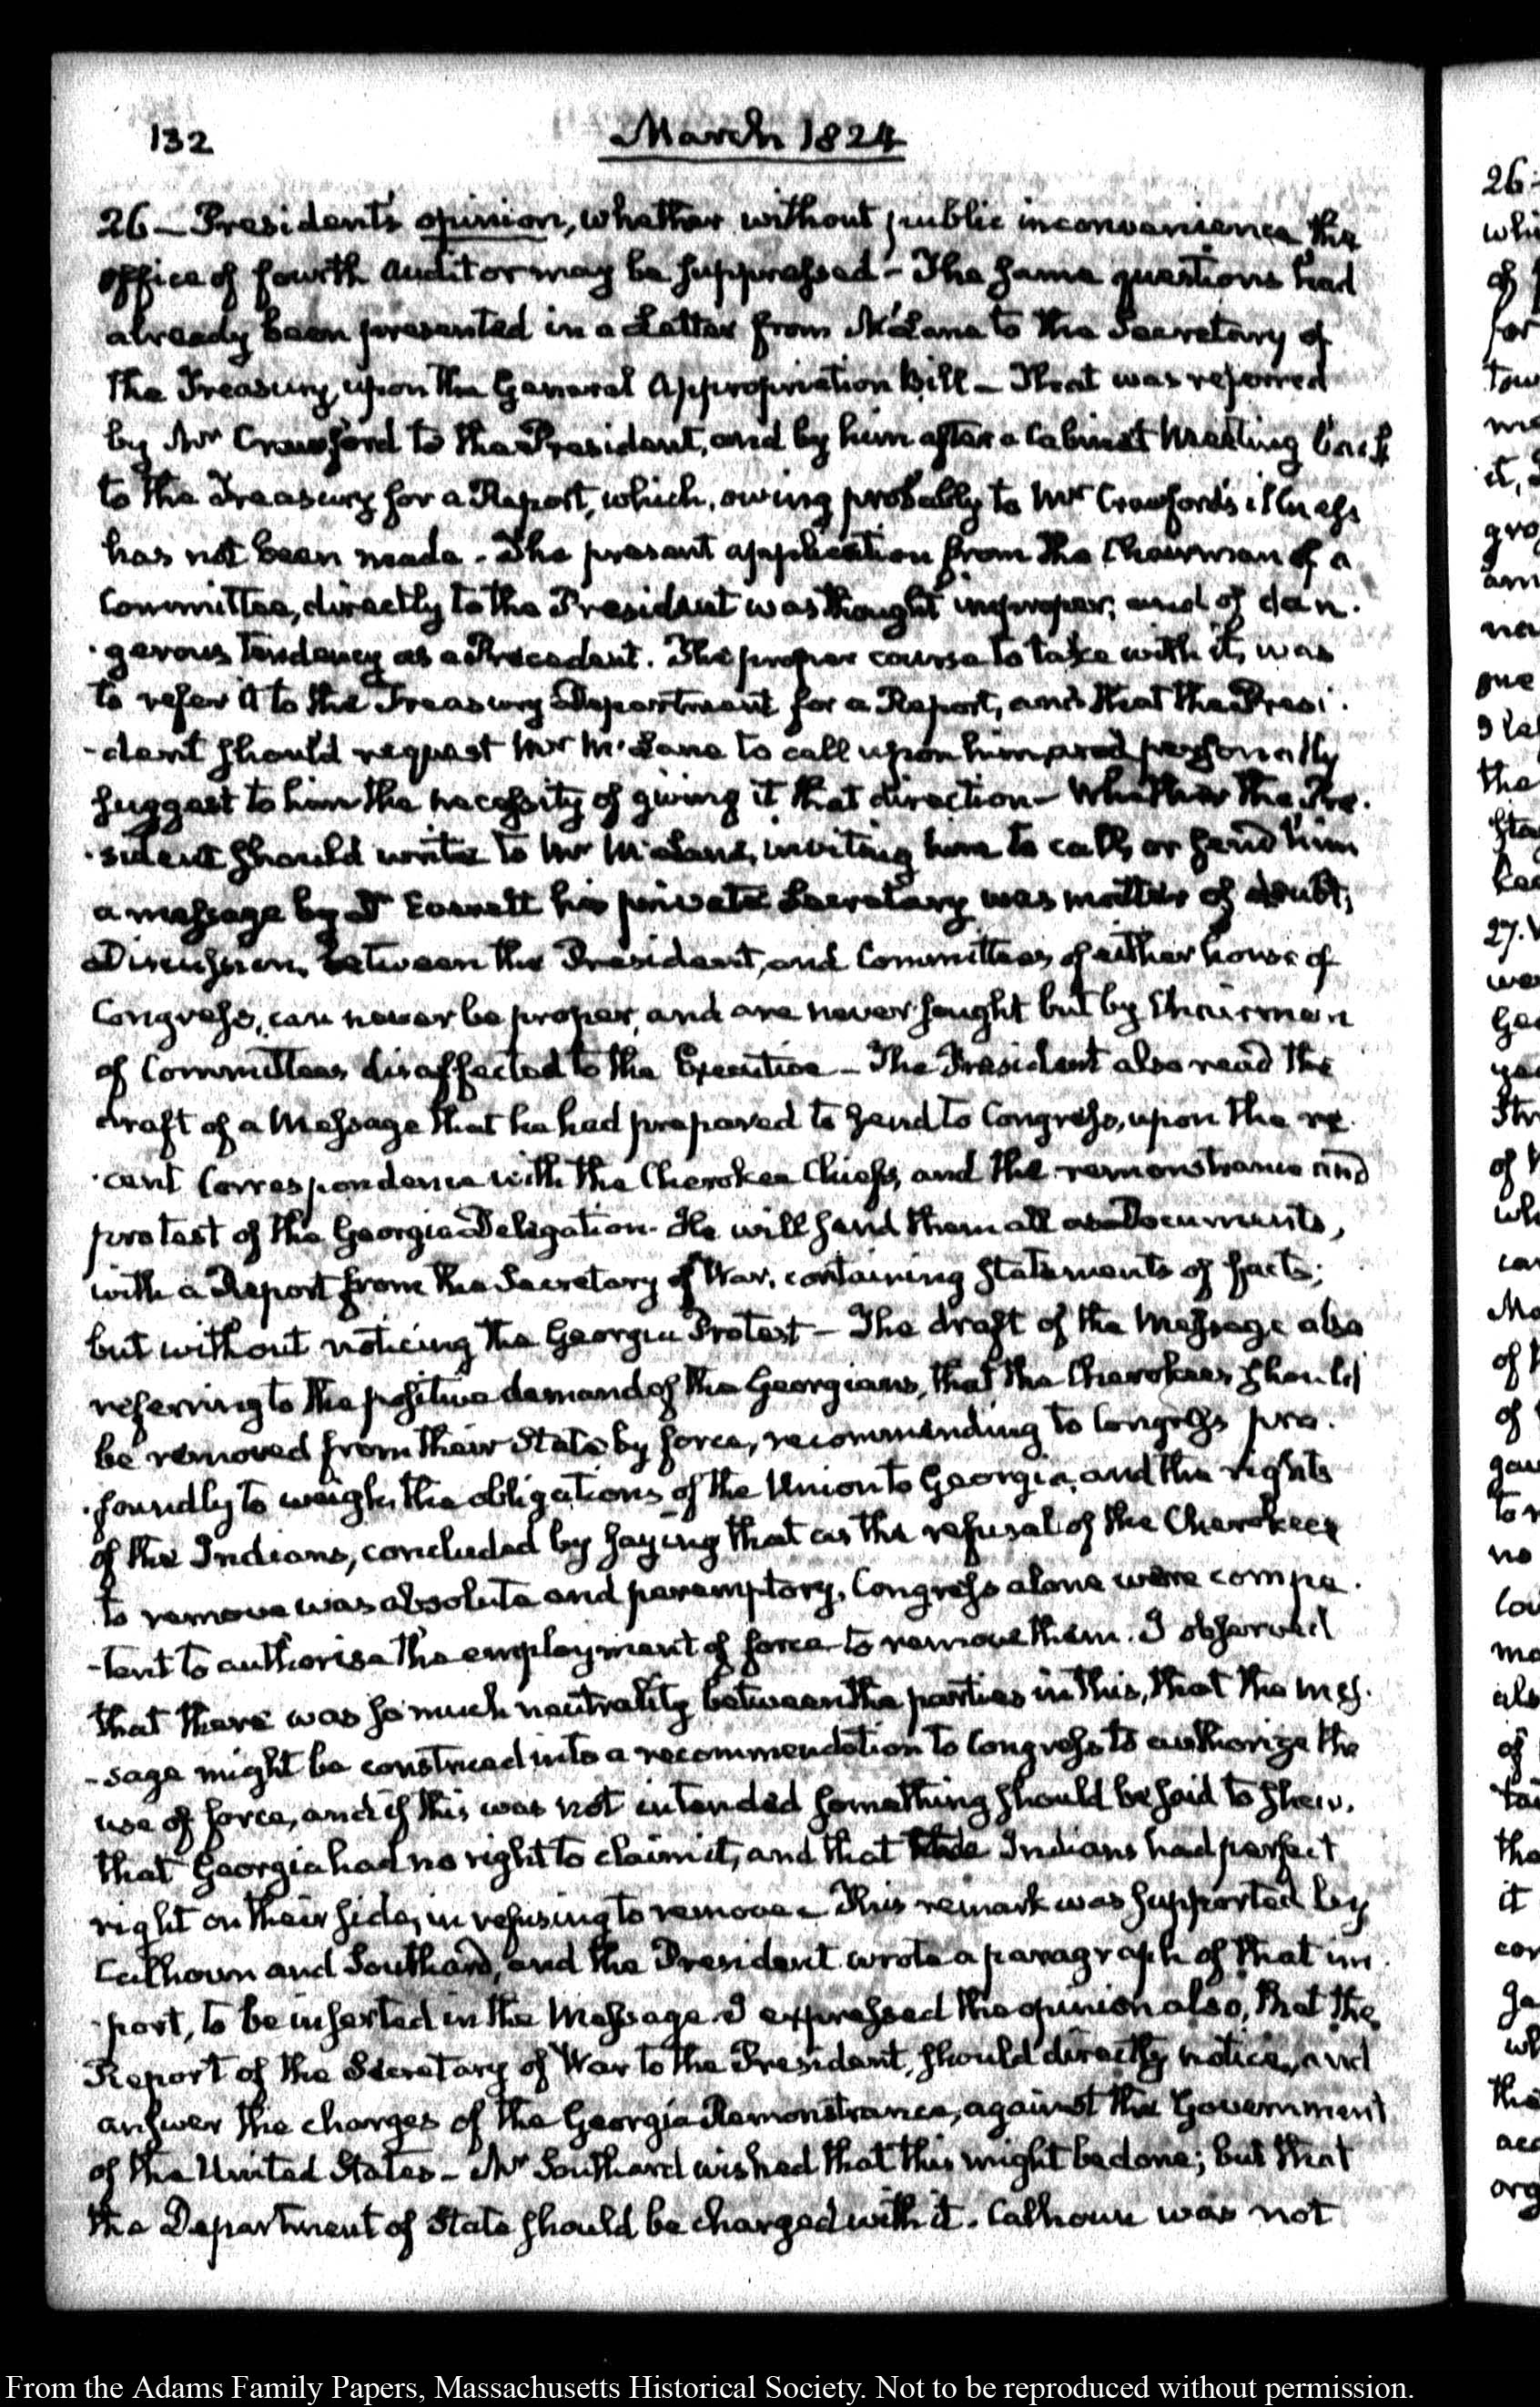 132
March 1824
26 — President's opinion, whether without public inconvenience the
office of fourth Auditor may be suppressed — The same questions had
already been presented in a Letter from McLane to the Secretary of
the Treasury, upon the General Appropriation Bill — That was referred
by Mr Crawford to the President, and by him after a Cabinet Meeting back
to the Treasury for a Report, which, owing probably to Mr Crawford's illness
has not been made. The present application from the Chairman of a
Committee, directly to the President was thought improper; and of dan-
-gerous tendency as a Precedent. The proper course to take with it, was
to refer it to the Treasury Department for a Report, and that the Presi-
-dent should request Mr McLane to call upon him, and personally
suggest to him the necessity of giving it that direction — Whether the Pre-
-sident should write to Mr McLane, inviting him to call, or send him
a message by Dr Everett his private Secretary was matter of doubt;
Discussions, between the President, and Committees of either house of
Congress, can never be proper, and are never sought but by Chairmen
of Committees disaffected to the Executive — The President also read the
draft of a Message that he had prepared to send to Congress, upon the re-
-cent Correspondence with the Cherokee Chiefs, and the remonstrance and
protest of the Georgia Delegation. He will send them all as Documents,
with a Report from the Secretary of War, containing statements of facts;
but without noticing the Georgia Protest — The draft of the Message also
referring to the positive demand of the Georgians, that the Cherokees should
be removed from their State by force, recommending to Congress pro-
-foundly to weigh, the obligations of the Union to Georgia, and the rights
of the Indians, concluded by saying that as the refusal of the Cherokees
to remove was absolute and peremptory, Congress alone were compe-
-tent to authorise the employment of force to remove them. I observed
that there was so much neutrality between the parties in this, that the mes-
-sage might be construed into a recommendation to Congress to authorize the
use of force, and if this was not intended something should be said to shew,
that Georgia had no right to claim it, and that the Indians had perfect
right on their side, in refusing to remove — This remark was supported by
Calhoun and Southard, and the President wrote a paragraph of that im-
-port, to be inserted in the Message. I expressed the opinion also, that the
Report of the Secretary of War to the President, should directly notice, and
answer the charges of the Georgia Remonstrance, against the Government
of the United States — Mr Southard wished that this might be done; but that
the Department of State should be charged with it. Calhoun was not
From the Adams Family Papers, Massachusetts Historical Society. Not to be reproduced without permission.